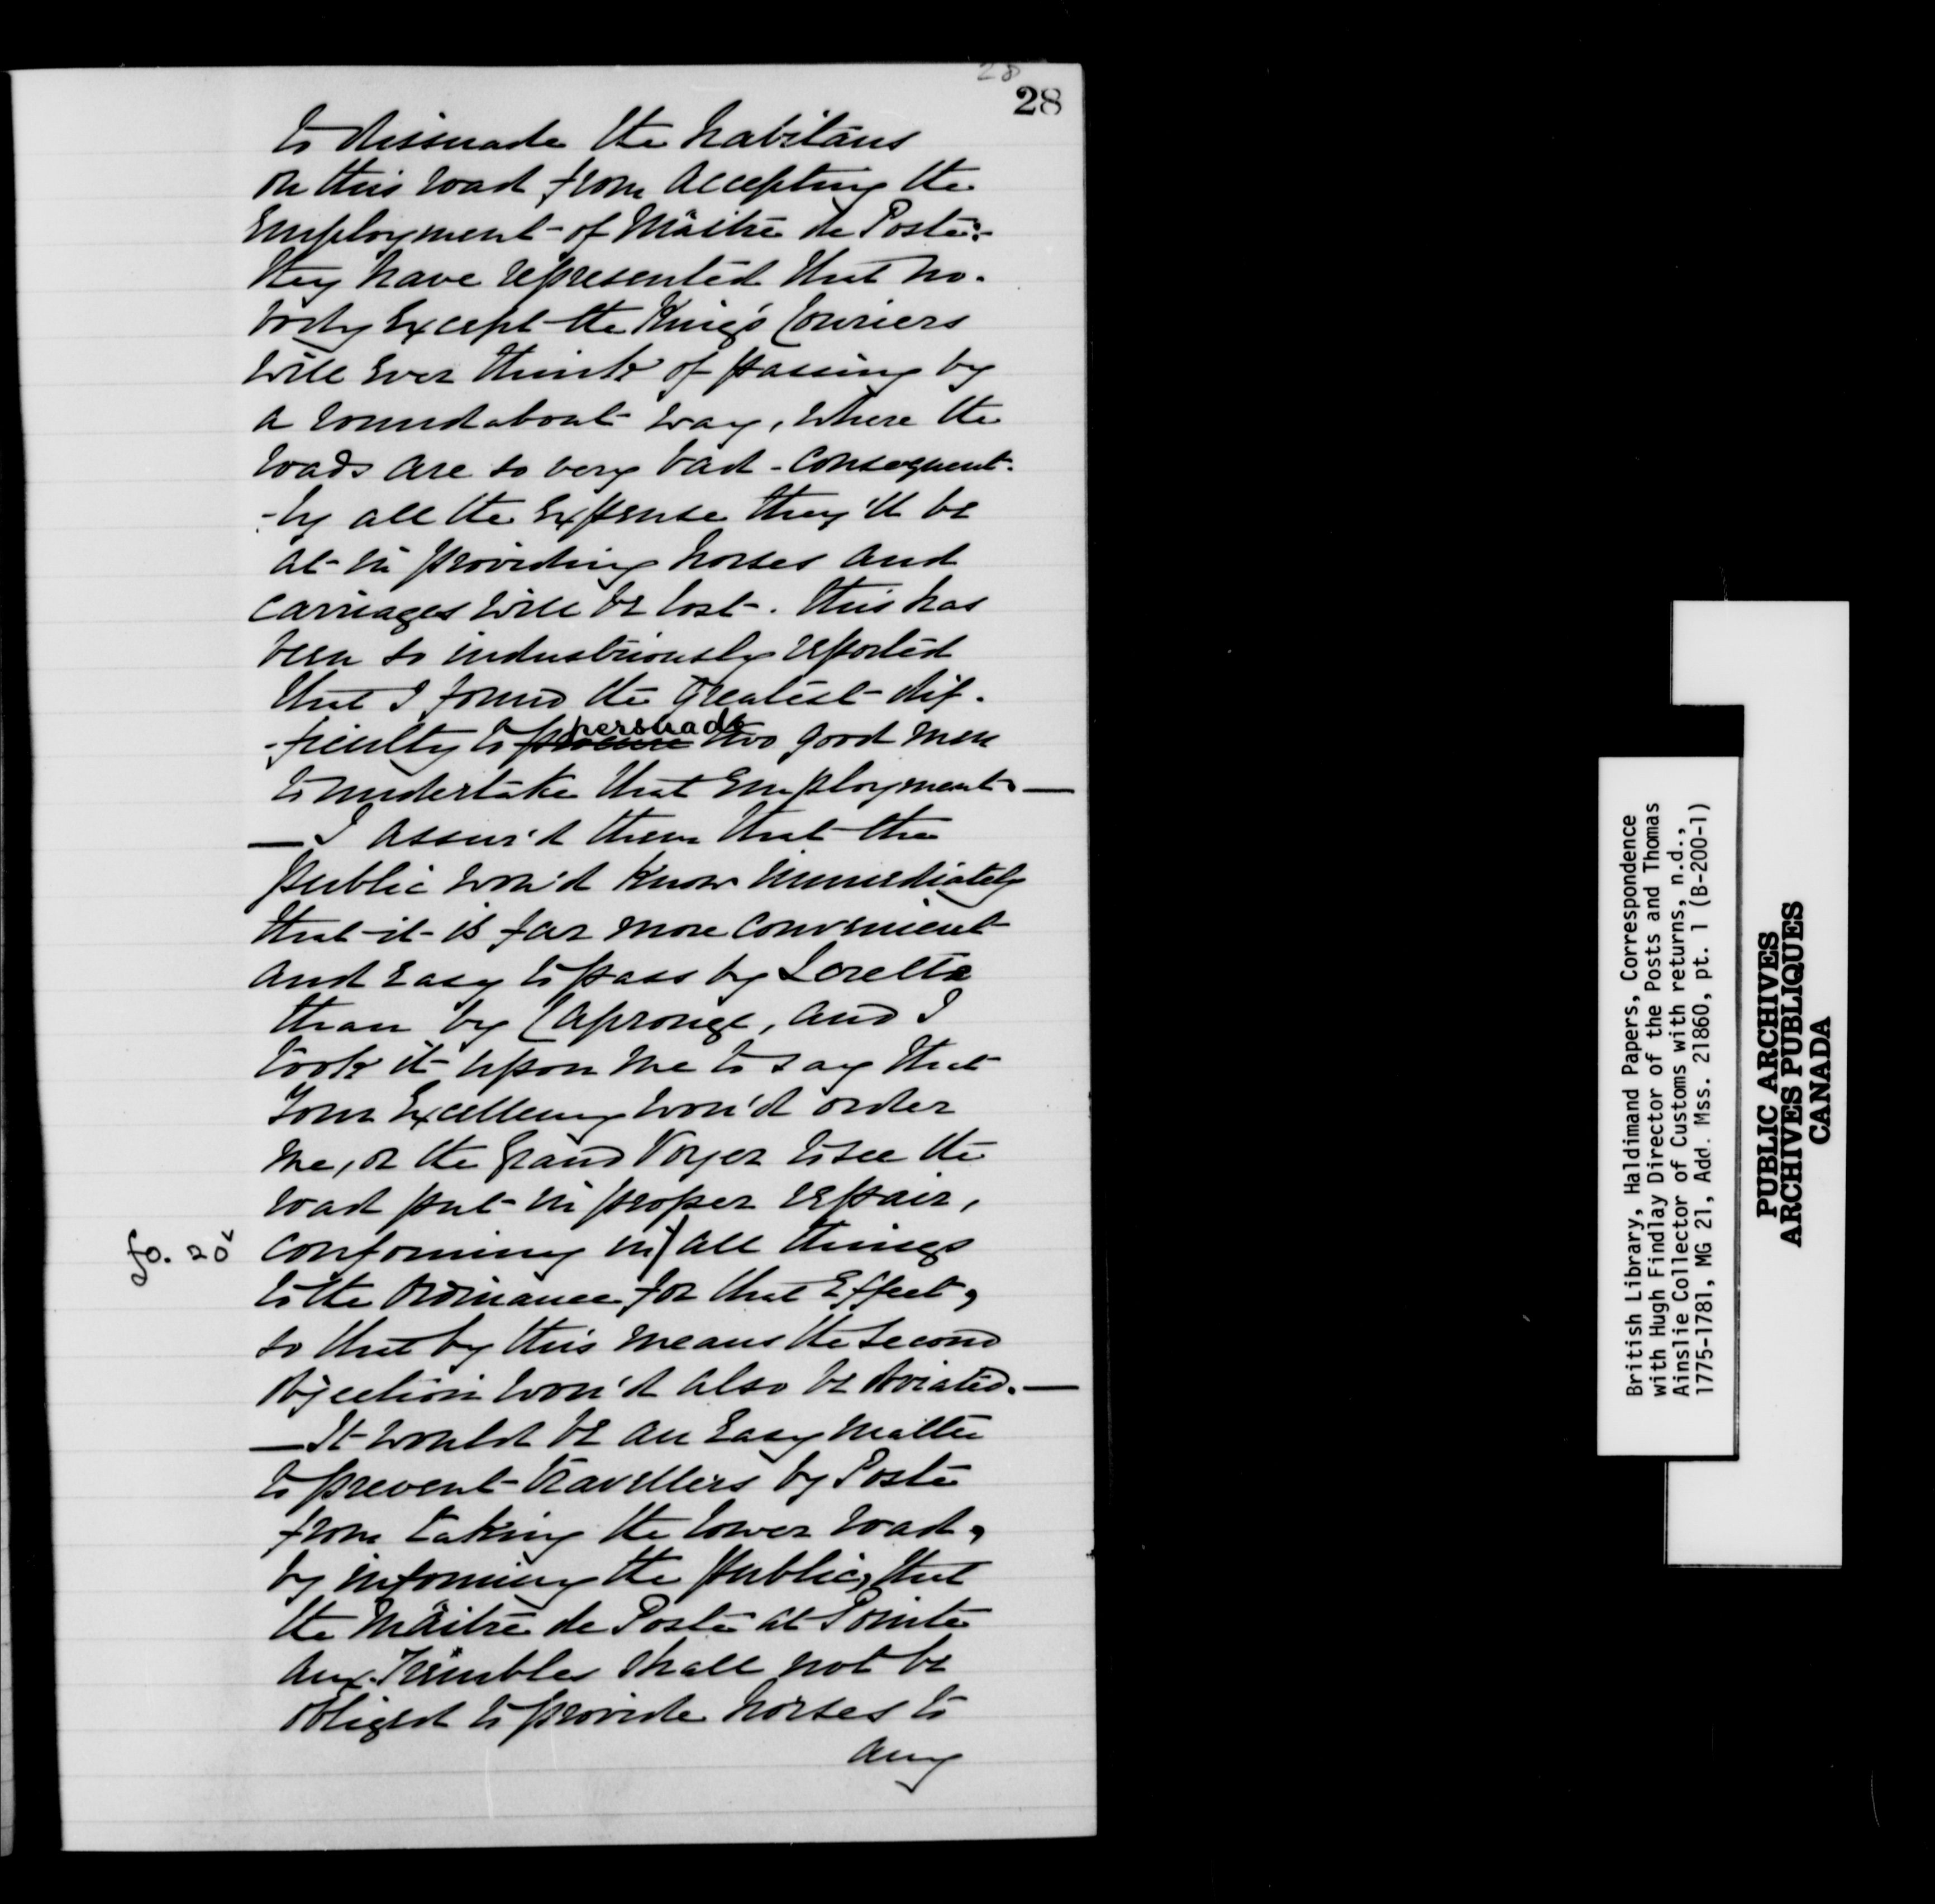 28
28
to dissuade the habitans
on this road from accepting the
Employment of Maitre de Poste:-
they have represented that no-
body Except the King's Couriers
will Ever think of passing by
a roundabout way, where the
roads are so very bad - consequent-
-ly all the Expense they'll be
at in providing horses and
carriages will be lost. this has
been so industriously reported
that I found the greatest dif-
-ficulty to procure persuade two good men
to undertake that Employment.—
— I assur'd them that the
public wou'd know immediately
that it is far more convenient
and Easy to pass by Lorette
than by Caprouge, and I
took it upon me to say that
Your Excellency wou'd order
me, or the Grand Voyer to see the
road put in proper repair,
fo. 20b conforming in) all things
to the Ordinance for that Effect,
so that by this means the second
objection wou'd also be obviated.—
— It would be an Easy matter
to prevent travellers by Poste
from taking the lower road,
by informing the public, that
the Maitre de Poste at Pointe
aux Trembles shall not be
obliged to provide horses to
any
British Library, Haldimand Papers, Correspondence
with Hugh Findlay Director of the Posts and Thomas
Ainslie Collector of Customs with returns, n.d.,
1775-1781, MG 21, Add. Mss. 21860, pt. 1 (B-200-1)
PUBLIC ARCHIVES
ARCHIVES PUBLIQUES
CANADA